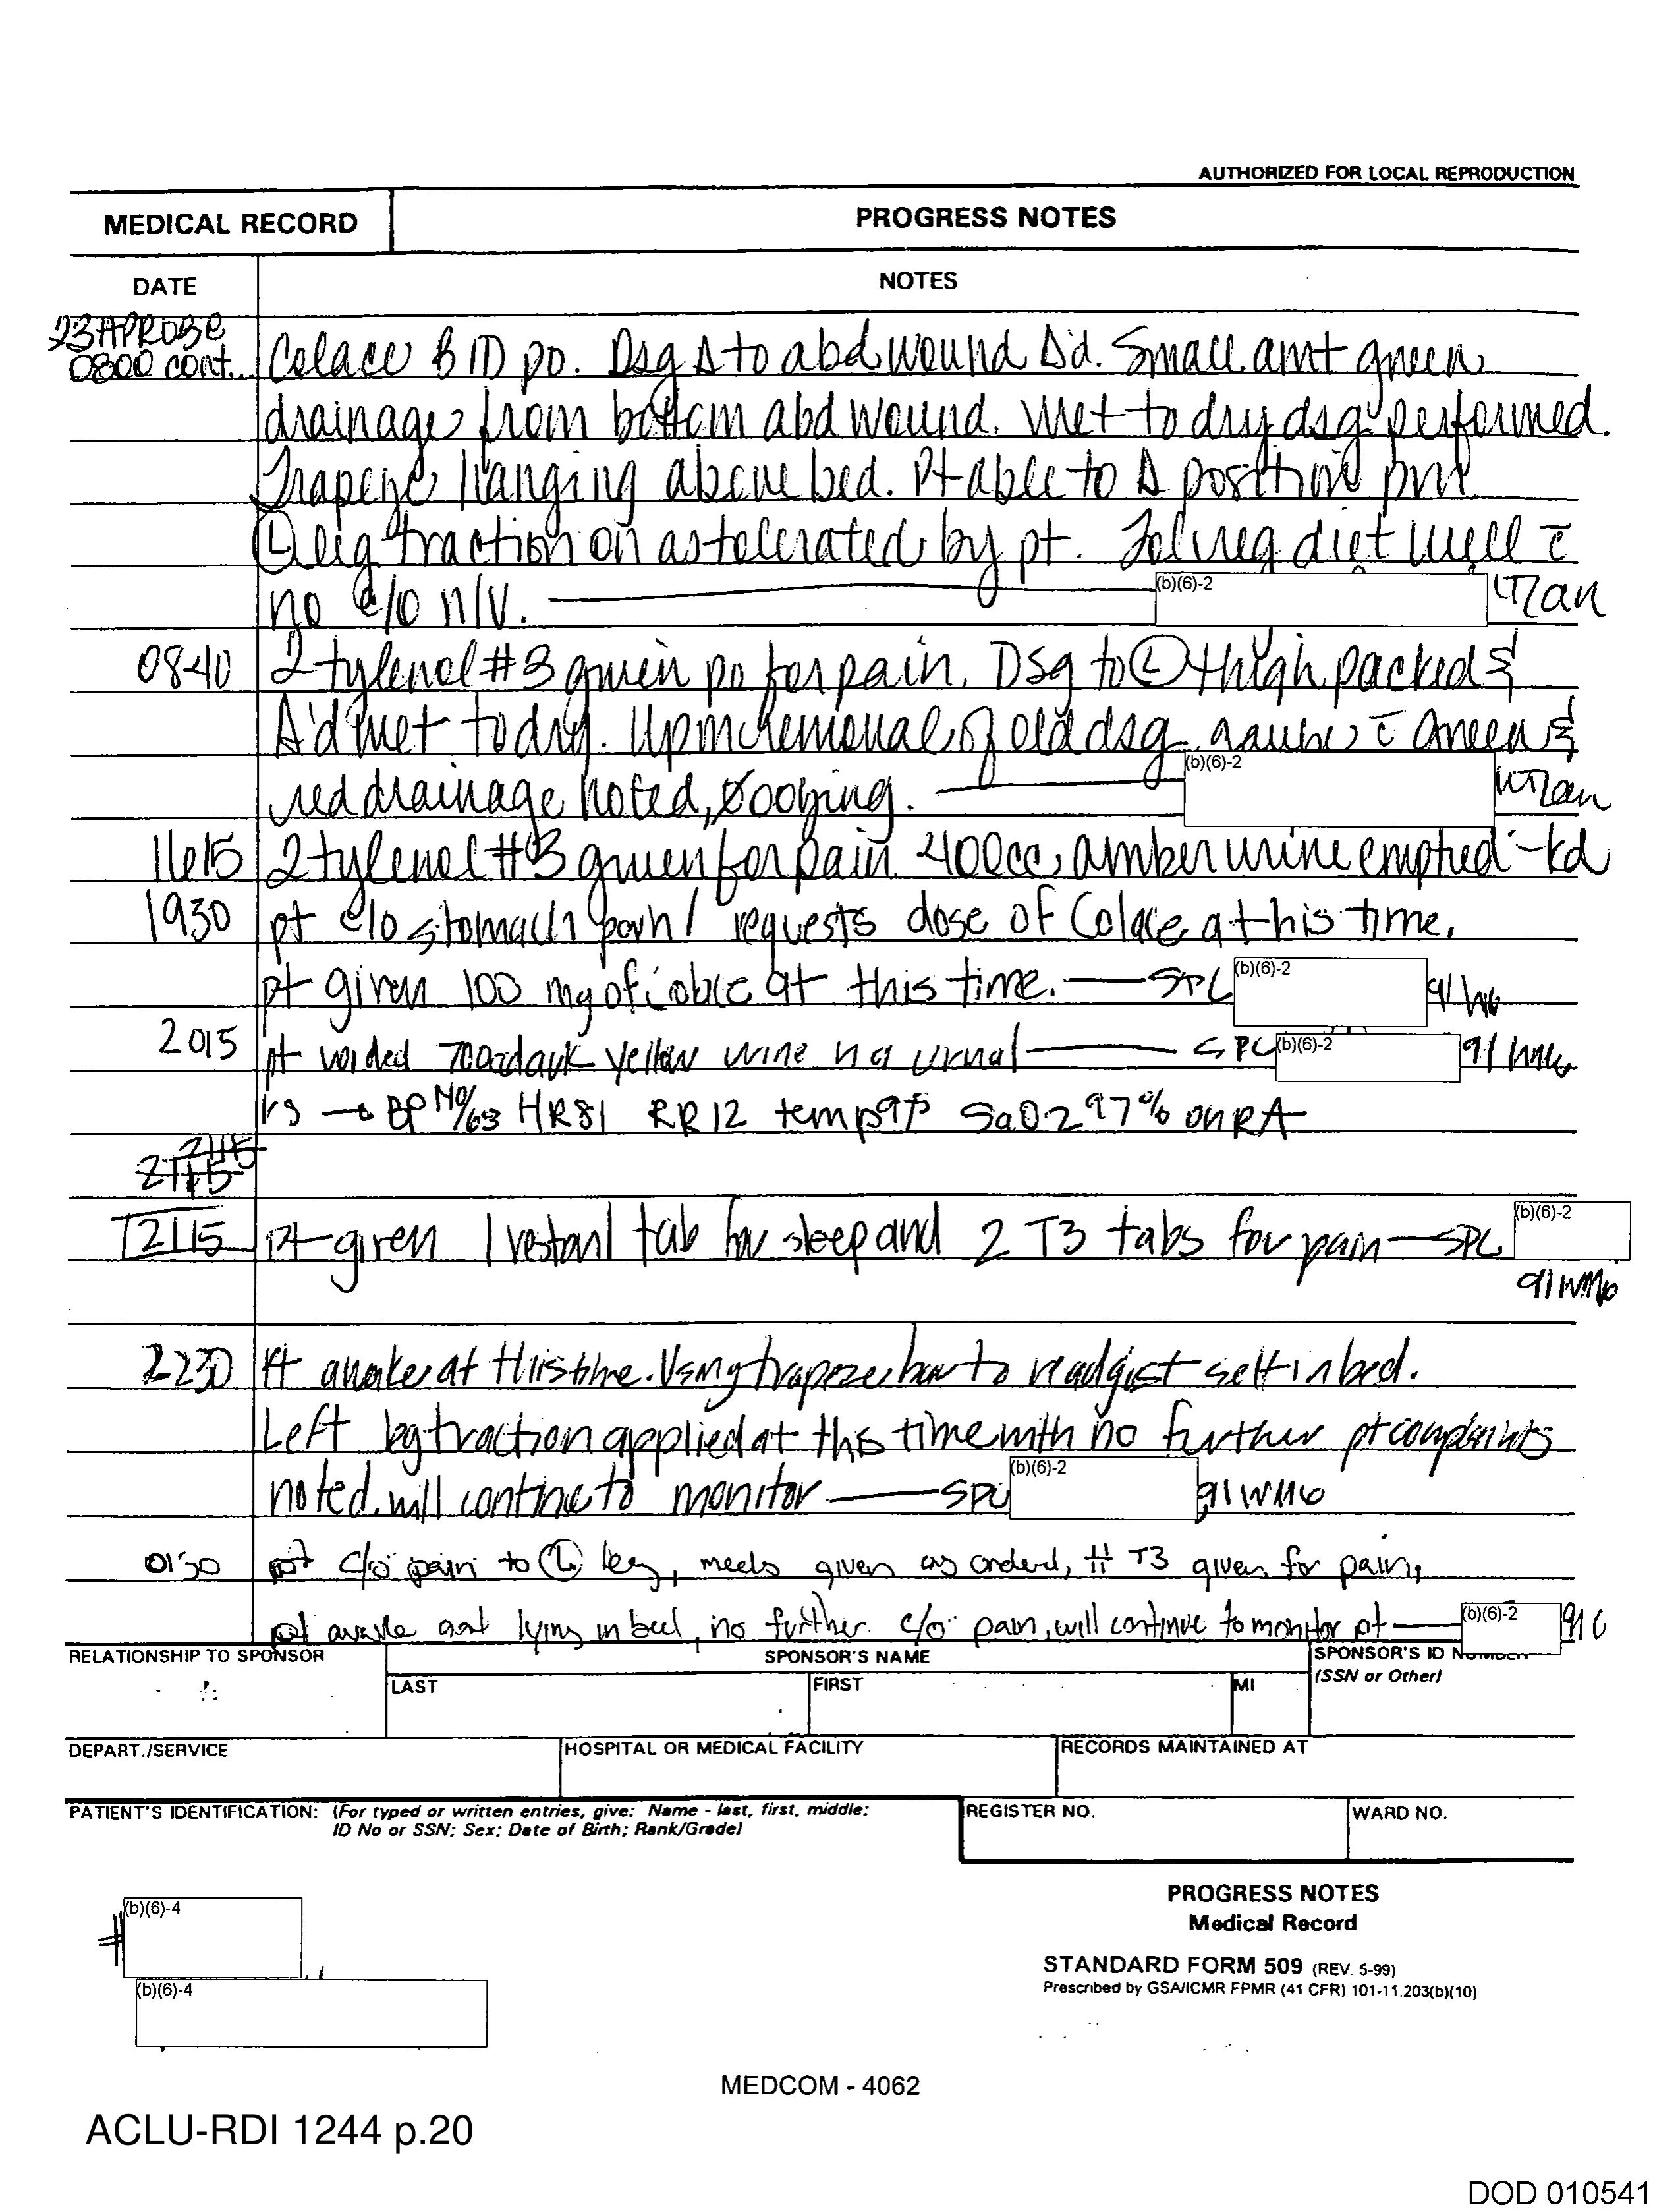 AUTHORIZED FOR LOCAL REPRODUCTION
MEDICAL RECORD
PROGRESS NOTES
DATE
NOTES
23APR03
0800 cont.
Colace BID po. Dsg Δ to abd wound Δ'd. Small amt green
drainage from bottom abd wound. Wet to dry dsg performed.
Trapeze hanging above bed. Pt able to Δ position prn.
Ⓛ leg traction on as tolerated by pt. Tol reg diet well c̄
no c/o n/v. (b)(6)-2
0840 2 tylenol #3 given po for pain. Dsg to Ⓛ thigh packed &
Δ'd wet to dry. Upon removal of old dsg gauze c̄ green &
red drainage noted, Ø oozing. (b)(6)-2
1615 2 tylenol #3 given for pain 400cc amber urine emptied
1930 pt c/o stomach pain / requests dose of Colace at his time.
pt given 100 mg of Colace at this time. — SPC (b)(6)-2
2015 pt voided dark yellow urine urinal — SPC (b)(6)-2
VS → BP 140/63 HR81 RR12 temp SaO2 97% on RA
2115
2115
2115 pt given 1 restoril tab for sleep and 2 T3 tabs for pain — SPC (b)(6)-2
91WM6
2230 Pt awake at this time. Using trapeze bar to readjust self in bed.
Left leg traction applied at this time with no further pt complaints
noted. will continue to monitor — SPC (b)(6)-2 91WM6
0130 pt c/o pain to Ⓛ leg, meds given as ordered, T3 given for pain,
pt awake lying in bed, no further c/o pain, will continue to monitor pt — (b)(6)-2
RELATIONSHIP TO SPONSOR
SPONSOR'S NAME
SPONSOR'S ID NUMBER
(SSN or Other)
LAST
FIRST
MI
DEPART./SERVICE
HOSPITAL OR MEDICAL FACILITY
RECORDS MAINTAINED AT
PATIENT'S IDENTIFICATION: (For typed or written entries, give: Name - last, first, middle;
ID No or SSN; Sex; Date of Birth; Rank/Grade)
REGISTER NO.
WARD NO.
# (b)(6)-4
(b)(6)-4
PROGRESS NOTES
Medical Record
STANDARD FORM 509 (REV. 5-99)
Prescribed by GSA/ICMR FPMR (41 CFR) 101-11.203(b)(10)
MEDCOM - 4062
ACLU-RDI 1244 p.20
DOD 010541